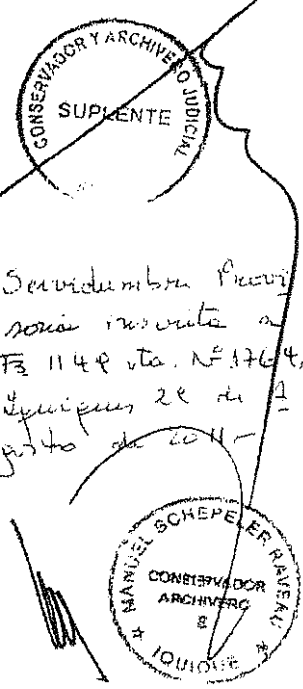 CONSERVADOR Y ARCHIVERO JUDICIAL
SUPLENTE
Servidumbre Provi
soria inscrita a
Fs 1149 vta. Nº 1764,
Iquique, 29 de A
gosto de 2011-
MANUEL SCHEPELER RAVEAU
CONSERVADOR
ARCHIVERO
IQUIQUE